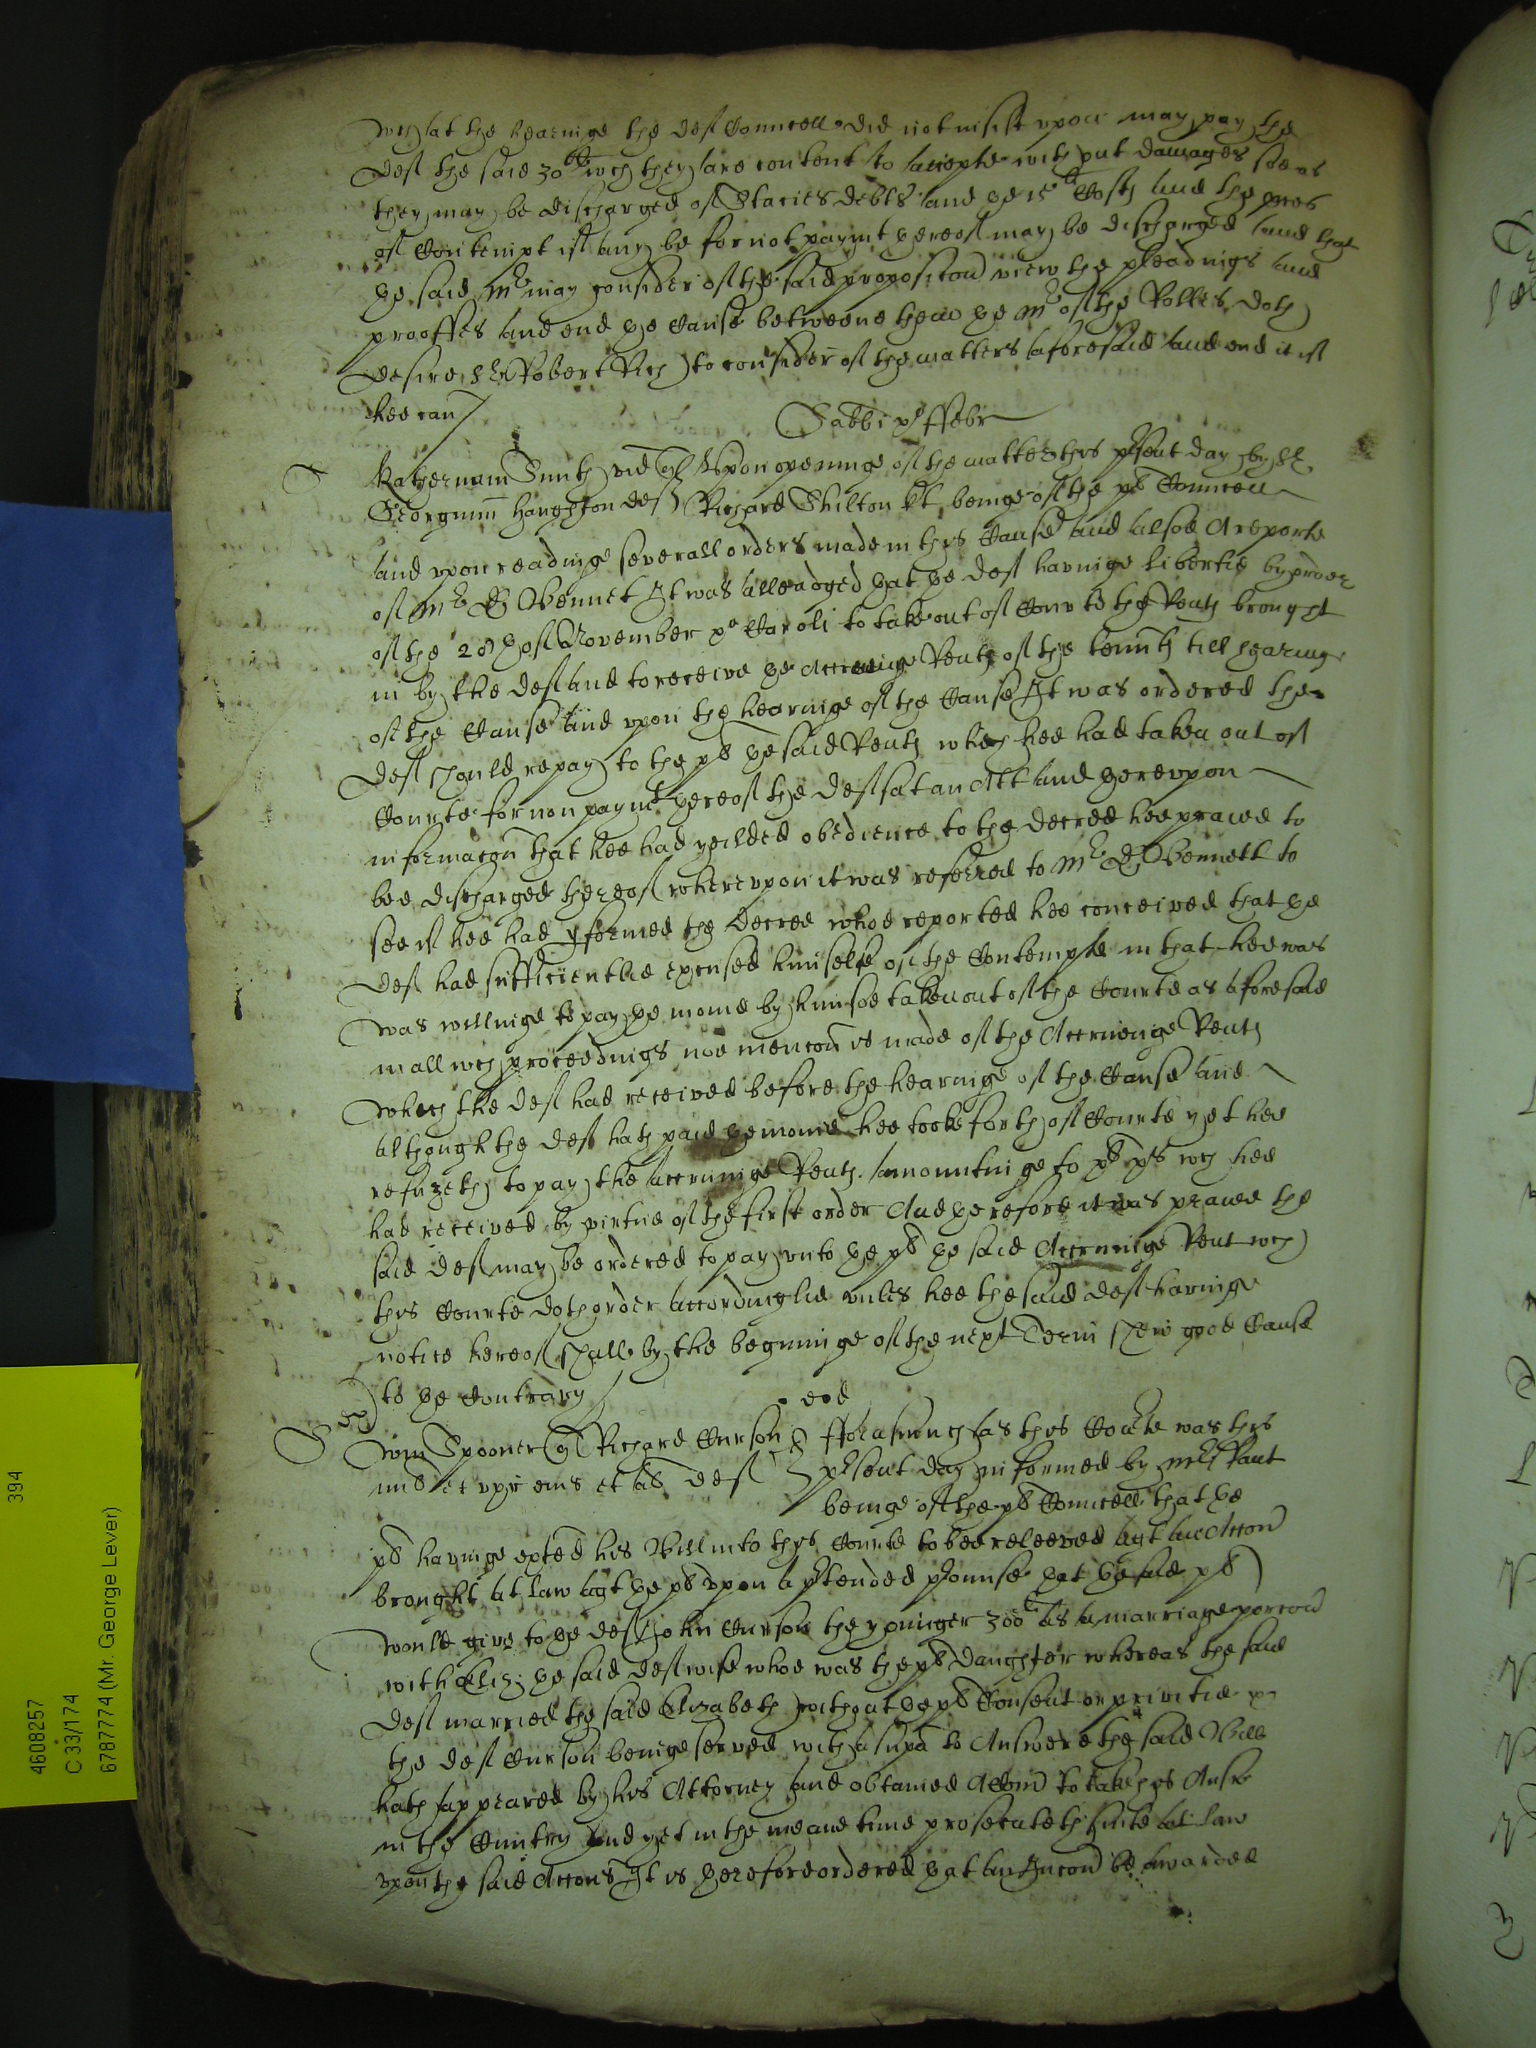 wch at the hearinge the deft Councell did not insist upon may pay the
deft the said 30li wch they are content to accepte without damages soe as
they may be discharged of Stacies debts and ye 15li Costs and the proces
of Contempt if any be for not paymt thereof may be discharged and that
ye said Mr may consider of the said proposicon view the pleadings and
prooffes and end ye Cause betweene them ye Mr of the Rolles doth
desire Sr Robert Rich to consider of the matters aforesaid and end it if
hee can
Sabbi po ffebr
S
Katherinam Smith vid Upon openinge of the matter this present day by Sr
Georgium Haughton deft Richard Shilton kt beinge of the pl Councell
and upon readinge severall orders made in this Cause and alsoe A reporte
of Mr Dr Bennet It was alleadged yat ye deft havinge libertie by order
of the 28th of November po Caroli to take out of Courte the Rents brought
in by the deft and to receive ye Accrueinge Rents of the tenmts till hearinge
of the Cause and upon the hearinge of the Cause It was ordered the
deft should repay to the pl ye said Rents which hee had taken out of
Courte for non paymt thereof the deft sat an Att and thereupon
informacon that hee had yeilded obedience to the decree hee praied to
bee discharged thereof whereupon it was referred to Mr Dr Bennett to
see if hee had pformed the decree whoe reported hee conceived that ye
deft had sufficientlie excused himselfe of the Contempte in that hee was
was willinge to pay ye monie by him soe taken out of the Courte as aforesaid
in all wch proceedings noe mencon is made of the Accrueinge Rents
which the deft had received before the hearinge of the Cause and
although the deft hath paid ye monie hee tooke forth of Courte yet hee
refuzeth to pay the accruinge Rents amountinge to wch hee
had received by virtue of the first order And therefore it was praied the
said deft may be ordered to pay unto ye pl ye said Accrueinge Rent wch
this Courte doth order accordinglie unles hee the said deft havinge
notice hereof shall by the beginninge of the next Terme shew good Cause
to ye Contrary
eod
S
Wm Spooner Richard Curson fforasmuch as this Courte was this
et uxr eius et als deft present day informed by Mr
beinge of the pl Councell that ye
pl havinge exted his Bill into this Courte to bee releeved agt an Accon
brought at law agt ye pl upon a pretended promise yat ye said pl
would give to ye deft John Curson the younger 300li as a marriage porcon
with Eliz: ye said deft wife whoe was the pl daughter whereas the said
deft married the said Elizabeth without ye pl Consent or privitie
the deft Curson beinge served with a supa to Answere the said Bill
hath appeared by his Attorney and obtained A Comn to take his Answ
in the Cuntry And yet in the meane time prosecuteth suite at law
upon the said Accons It is therefore ordered yat an Iniuncon be awarded
394
4608257
C 33/174
6787774 (Mr. George Lever)